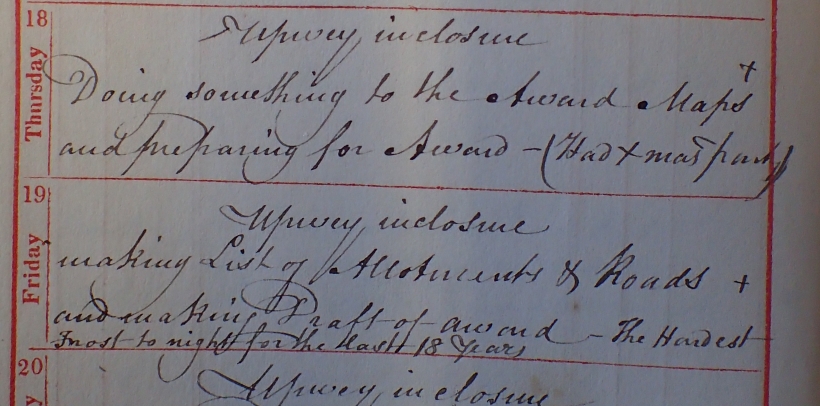 18
Thursday
Upwey inclosure
Doing something to the Award Maps +
and preparing for Award - (Had Xmas party)
19
Friday
Upwey inclosure
making List of Allotments & Roads +
and making Draft of award - The Hardest
Frost to night for the last 18 Years
20
Upwey inclosure